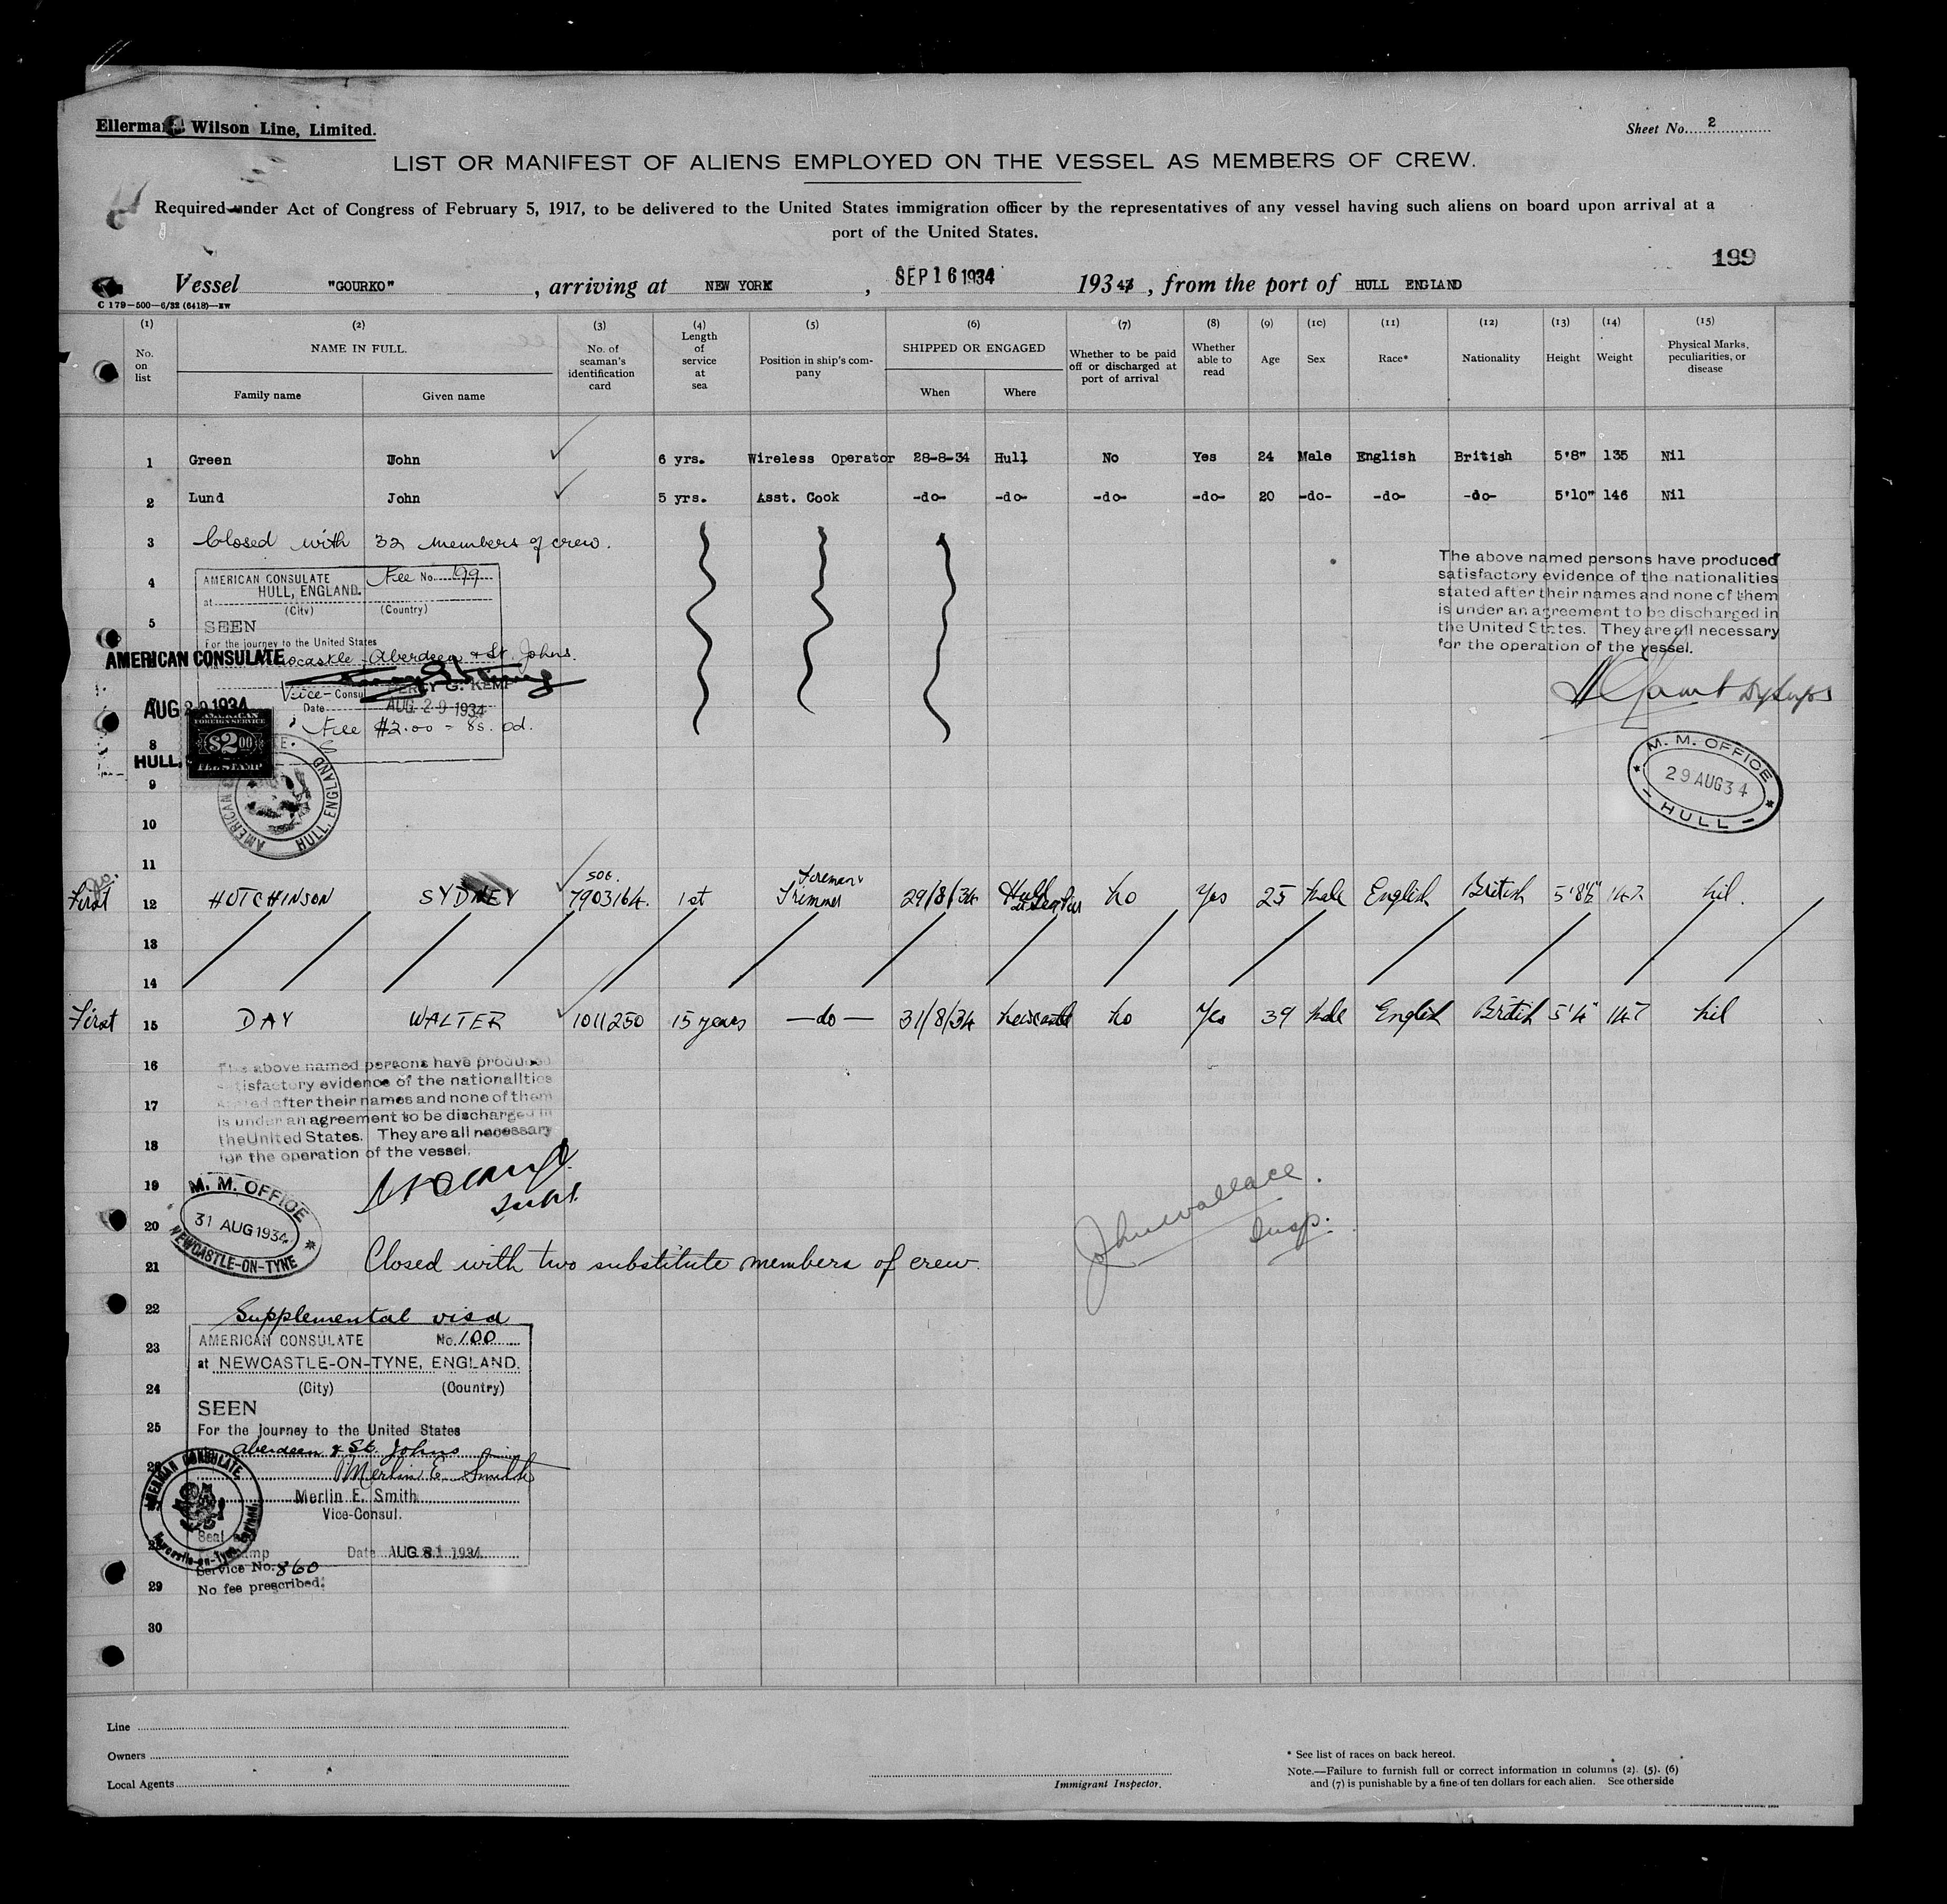 Ellerman's Wilson Line, Limited.
Sheet No. 2
LIST OR MANIFEST OF ALIENS EMPLOYED ON THE VESSEL AS MEMBERS OF CREW.
Required under Act of Congress of February 5, 1917, to be delivered to the United States immigration officer by the representatives of any vessel having such aliens on board upon arrival at a
port of the United States.
199
Vessel "GOURKO", arriving at NEW YORK, SEP 16 1934 193 , from the port of HULL ENGLAND
C 179-500-6/32 (6418)-NW
(1) (2) (3) (4) (5) (6) (7) (8) (9) (10) (11) (12) (13) (14) (15)
No. on list
NAME IN FULL.
Family name
Given name
No. of seaman's identification card
Length of service at sea
Position in ship's company
SHIPPED OR ENGAGED
When
Where
Whether to be paid off or discharged at port of arrival
Whether able to read
Age
Sex
Race*
Nationality
Height
Weight
Physical Marks, peculiarities, or disease
1 Green John 6 yrs. Wireless Operator 28-8-34 Hull No Yes 24 Male English British 5'8" 135 Nil
2 Lund John 5 yrs. Asst. Cook -do- -do- -do- -do- 20 -do- -do- -do- 5'10" 146 Nil
3 Closed with 32 members of crew.
4
AMERICAN CONSULATE Fee No. 199
at HULL, ENGLAND.
(City) (Country)
5
SEEN
For the journey to the United States
Aberdeen & St. Johns.
AMERICAN CONSULATE
PERCY G. KEMP
Vice-Consul
Date AUG 29 1934
AUG 29 1934
Fee $2.00 = 8s. 0d.
AMERICAN
FOREIGN SERVICE
$2.00
FEE STAMP
HULL,
AMERICAN
HULL, ENGLAND
The above named persons have produced
satisfactory evidence of the nationalities
stated after their names and none of them
is under an agreement to be discharged in
the United States. They are all necessary
for the operation of the vessel.
M. M. OFFICE
29 AUG 34
HULL
8
9
10
11
First 12 HUTCHINSON SYDNEY 506. 7903164. 1st Fireman & Trimmer 29/8/34 Hull No Yes 25 Male English British 5'8½" 147 Nil.
13
14
First 15 DAY WALTER 1011250 15 years —do— 31/8/34 Newcastle No Yes 39 Male English British 5'4" 147 Nil
16
The above named persons have produced
satisfactory evidence of the nationalities
17
stated after their names and none of them
is under an agreement to be discharged in
18
the United States. They are all necessary
for the operation of the vessel.
19
Supt.
M. M. OFFICE
31 AUG 1934
NEWCASTLE-ON-TYNE
20
John Wallace.
Insp.
21 Closed with two substitute members of crew.
22 Supplemental visa
23
AMERICAN CONSULATE No. 100
at NEWCASTLE-ON-TYNE, ENGLAND.
24
(City) (Country)
SEEN
25
For the Journey to the United States
Aberdeen & St. Johns
Merlin E. Smith
Merlin E. Smith
Vice-Consul.
AMERICAN CONSULATE
Newcastle-on-Tyne, England
Date AUG 31 1934
Service No. 860
29
No fee prescribed.
30
Line
Owners
Local Agents
Immigrant Inspector.
* See list of races on back hereof.
Note.—Failure to furnish full or correct information in columns (2), (5), (6)
and (7) is punishable by a fine of ten dollars for each alien. See other side